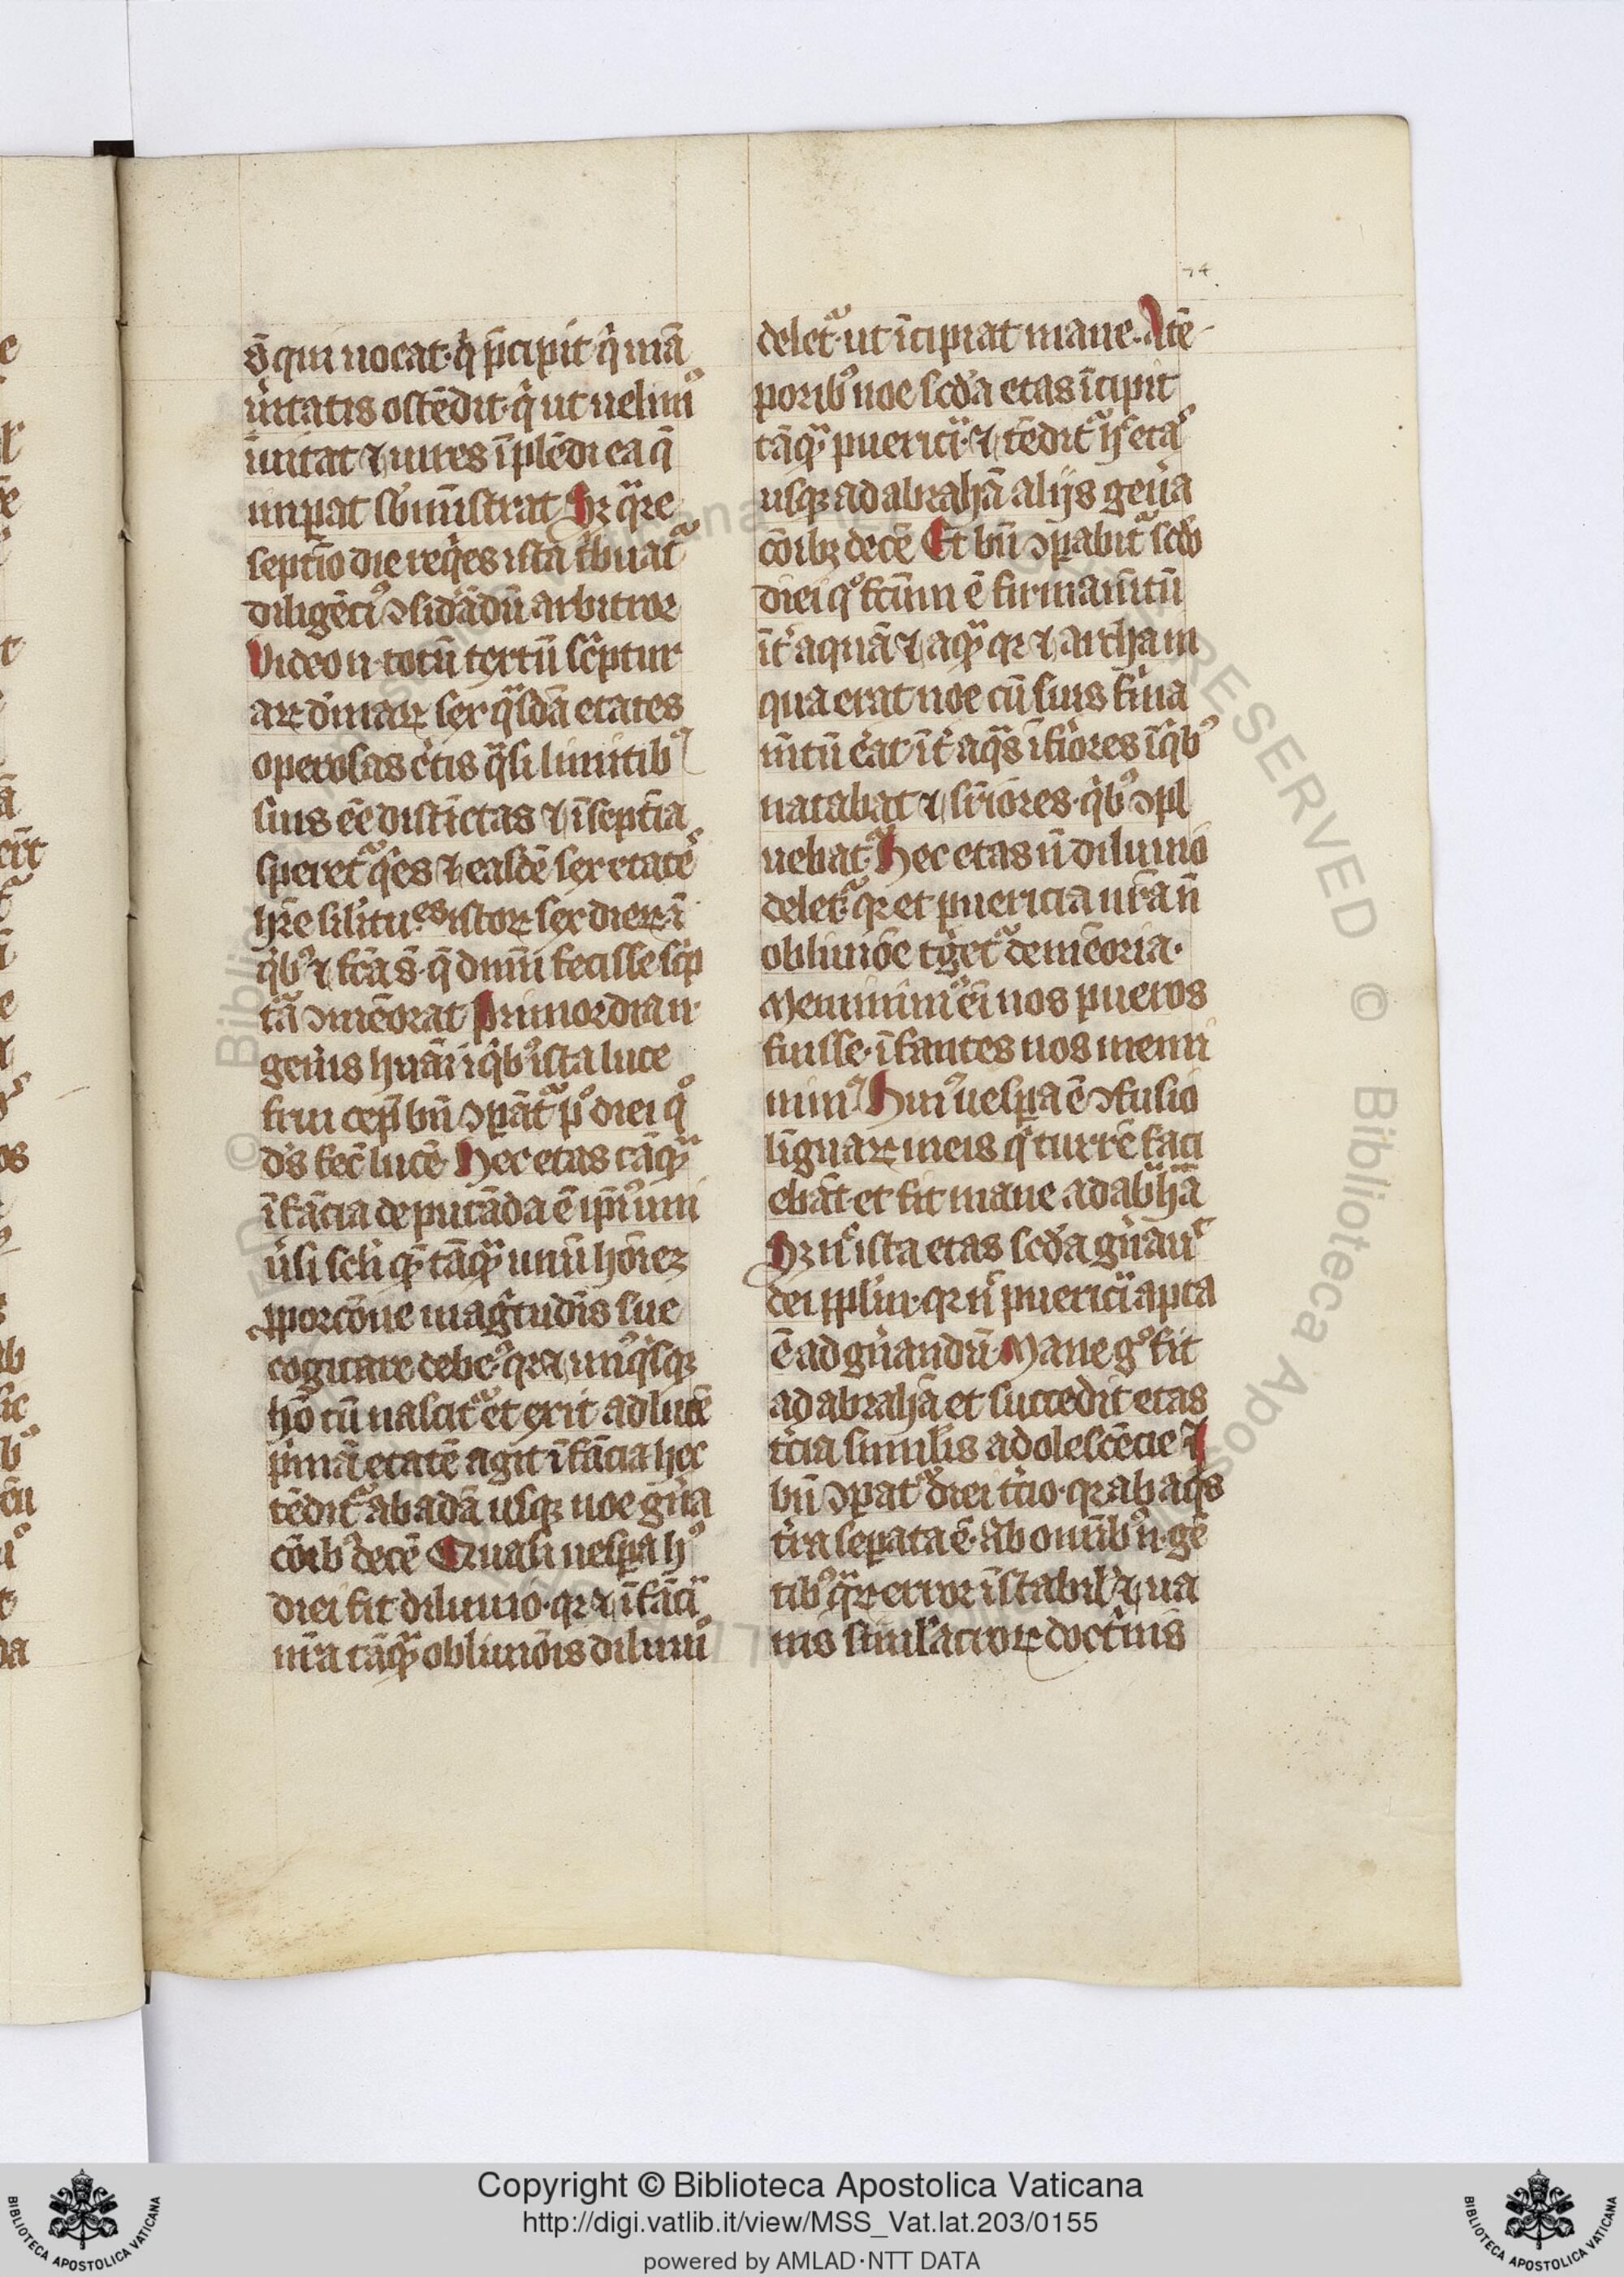 74
s̄ qui uocat· q̇ p̄cipit q̇ uiā
ūitatis ostēdit· q̇ ut uelim᾽
īuitat ⁊ uires īplēdi ea q̄
impat sb̓miīstrat Sꝫ qͣre
septīo die req̇es ista tͥbuatͬ
diligēti᾽ ꝯsidādū arbitror
Video n· totū textū scͥptur
aꝝ diuinaꝝ sex qͣsdā etates
operosas c̄tis qͣsi limitib᾽
suis eē distīctas ⁊ ī septīa
speretͬ q̇es ⁊ easdē sex etates
hr̄e silitu.es istoꝝ sex dieꝝ ī
q̇b᾽ ⁊ fc̄a s̄· q̄ dm̄ fecisse scͥp
tā ꝯmēorat Primordia n·
gen̄is hūai ī q̇b᾽ ista luce
frui cep̄ bn̄ ꝯpātͬ pͦ diei qͦ
ds̄ fec̄ lucē Hec etas tāqͣ
īfācia deputāda ē ip̄i᾽ uni
ūsi scl̄i qͣ tāqͣ unū hoīez
ꝓporcōne magͥtudīs sue
cogitare debe᾽ qꝛ ⁊ un᾽q̇sqꝫ
hō cū nascitͬ et exit ad lucē
pͥmā etatē agit īfācia hec
tēditͬ ab adā usqꝫ noe gn̄a
cōib᾽ decē Quasi uespa h᾽
diei fit diluuio· qꝛ ⁊ īfācia
nr̄a tāqͣ obliuiōis diluuio
deletͬ· ut īcipiat mane· A tē-
porib᾽ noe scd̓a etas īcipit
tāqͣ puericia· ⁊ tēditͬ hͨ etas
usqꝫ ad abrahā alijs gen̄a
cōibꝫ decē Et bn̄ ꝯpabitͬ scd̓o
diei qͦ fc̄um ē firmam̄tū
īt̄ aquā ⁊ aqͣ qꝛ ⁊ archa in
qua erat noe cū suis firma
m̄tū erat īt̄ aqͣs īfiores ī q̇b᾽
natabat ⁊ sūiores· q̇b᾽ ꝯpl
uebatͬ· Hec etas n̄ diluuio
deletͬ· qꝛ et puericia nr̄a n̄
obliuiōe tgetͬ de mēoria·
Meminim᾽ ei nos pueros
fuisse· īfantes nos memi
nim᾽ Hui᾽ uespa ē ꝯfusio
līguaꝝ ī eis q̇ turrē faci
ebāt· et fit mane ad abͬhā
Sꝫ nͨ ista etas scd̓a gn̄auͨ
dei pplm· qꝛ nͨ puericia apta
ē ad gn̄andū· Mane gͦ fit
ad abrahā et succedit etas
tͨcia similis adolescēcie ⁊
bn̄ ꝯpatͬ diei tͨcio· qꝛ ab aqͥs
tͬra sepata ē· Ab omīb᾽ n· gē
tib᾽ qͣꝝ error īstabilis ⁊ ua
nis simulacroꝝ doctͥnis
Copyright © Biblioteca Apostolica Vaticana
http://digi.vatlib.it/view/MSS_Vat.lat.203/0155
powered by AMLAD·NTT DATA